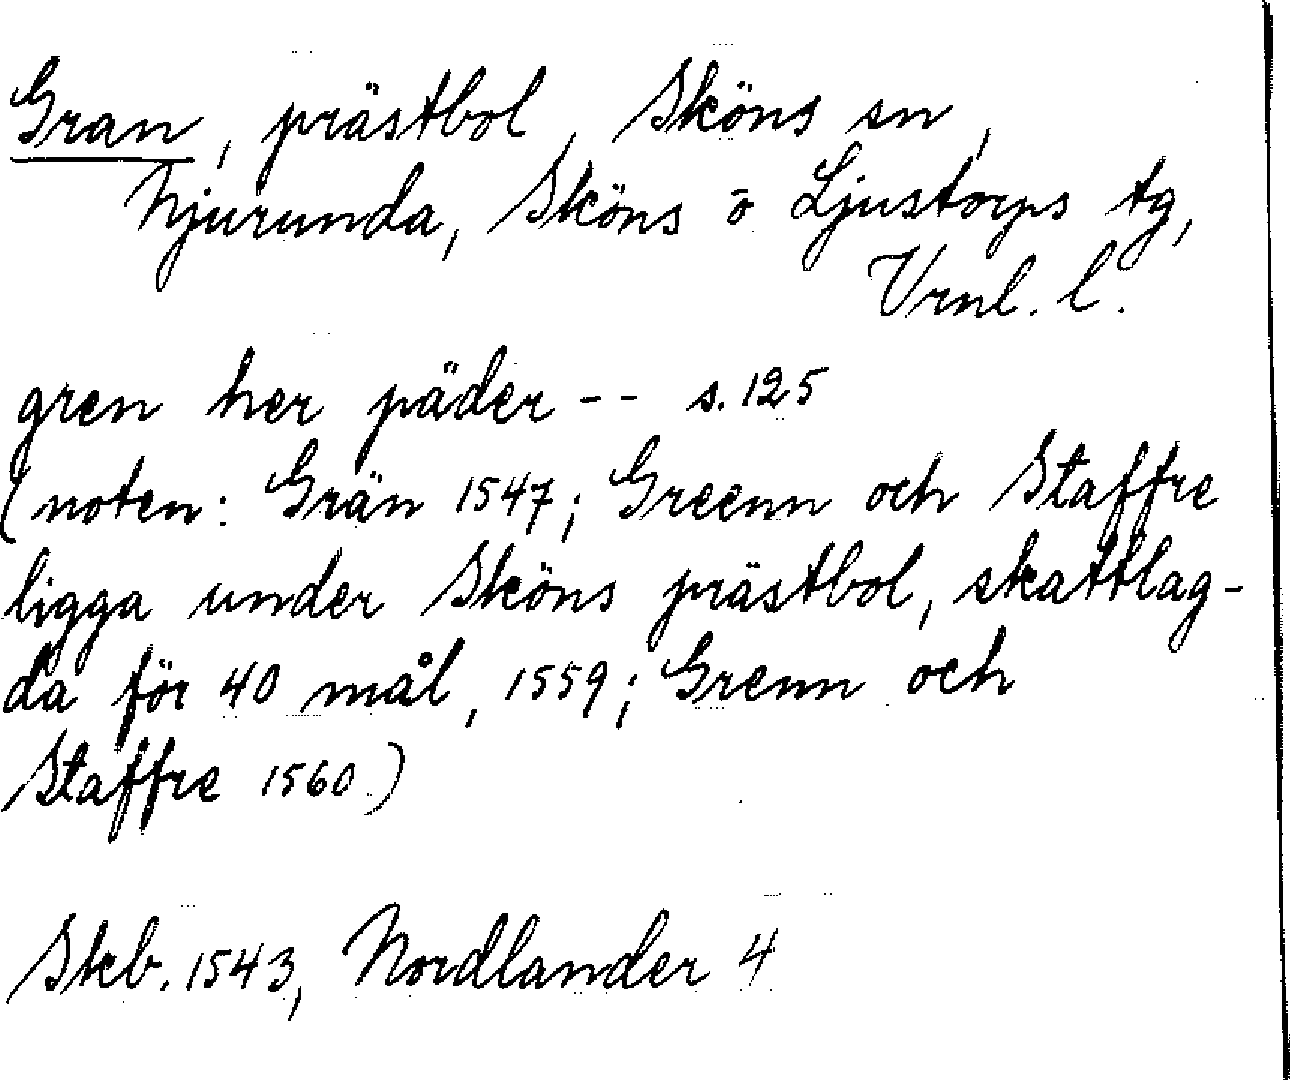 Gran, prästbol, Sköns sn,
Njurunda, Sköns o Ljustorps tg,
Vrnl. l.
gren her päder -- s. 125
(noten: Grän 1547; Greenn och Staffre
ligga under Sköns prästbol, skattlag-
da för 40 mål, 1559; Grenn och
Staffre 1560.)
Skb. 1543, Nordlander 4